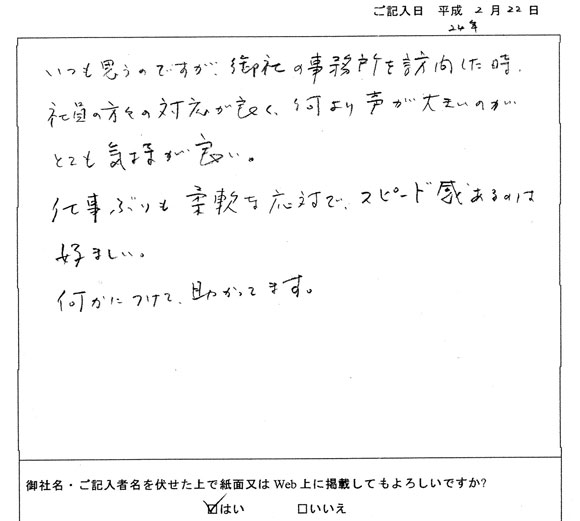 ご記入日 平成 2 月 22 日
24年
いつも思うのですが、御社の事務所を訪問した時、
社員の方々の対応が良く、何より声が大きいのが
とても気持が良い。
仕事ぶりも柔軟な応対で、スピード感あるのは
好ましい。
何かにつけて、助かってます。
御社名・ご記入者名を伏せた上で紙面又は Web 上に掲載してもよろしいですか?
☑はい □いいえ